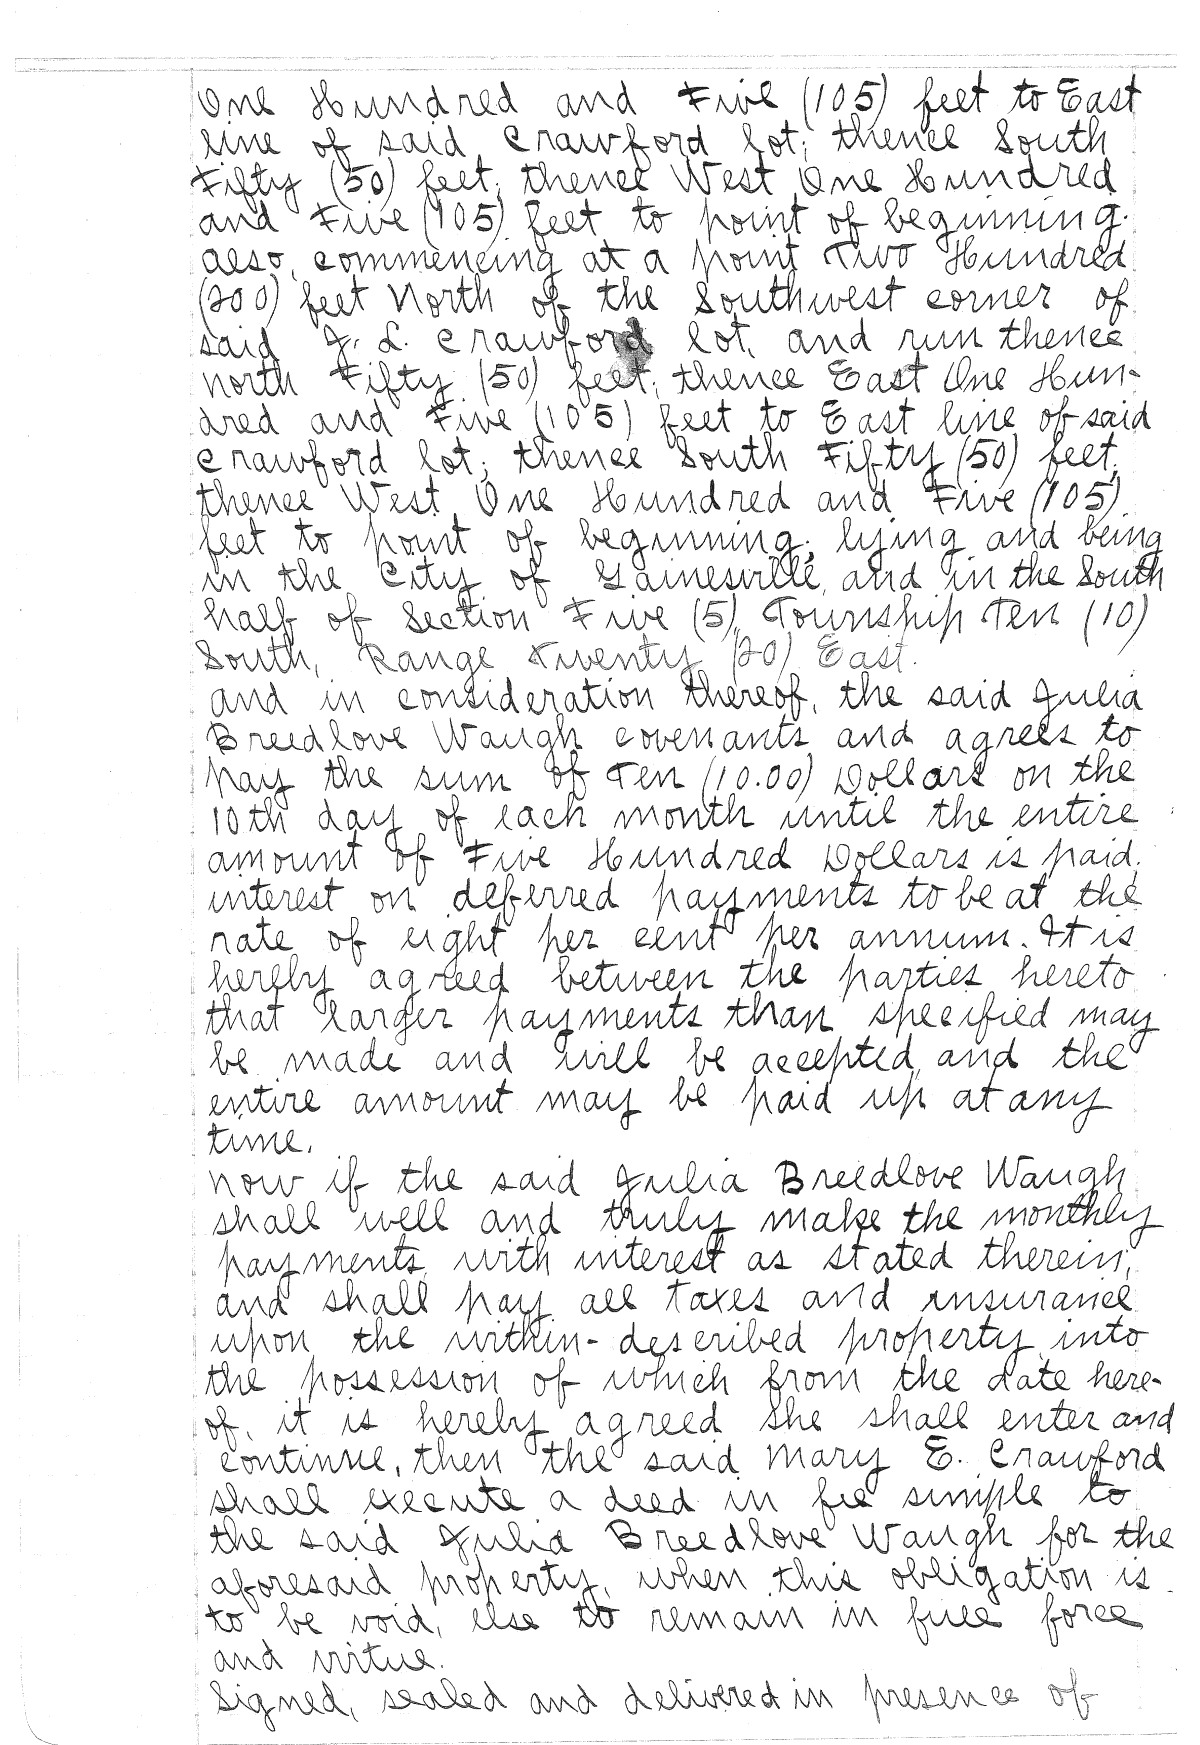 One Hundred and Five (105) feet to East
line of said Crawford lot; thence South
Fifty (50) feet; thence West One Hundred
and Five (105) feet to point of beginning.
also, commencing at a point Two Hundred
(200) feet North of the Southwest corner of
said J. L. Crawford lot, and run thence
North Fifty (50) feet; thence East One Hun-
dred and Five (105) feet to East line of said
Crawford lot; thence South Fifty (50) feet;
thence West One Hundred and Five (105)
feet to point of beginning; lying and being
in the City of Gainesville, and in the South
half of Section Five (5), Township Ten (10)
South, Range Twenty (20) East.
and in consideration thereof, the said Julia
Breedlove Waugh covenants and agrees to
pay the sum of Ten (10.00) Dollars on the
10th day of each month until the entire
amount of Five Hundred Dollars is paid;
interest on deferred payments to be at the
rate of eight per cent per annum. It is
hereby agreed between the parties hereto
that larger payments than specified may
be made and will be accepted, and the
entire amount may be paid up at any
time.
Now if the said Julia Breedlove Waugh
shall well and truly make the monthly
payments, with interest as stated therein,
and shall pay all taxes and insurance
upon the within-described property, into
the possession of which from the date here-
of, it is hereby agreed she shall enter and
continue, then the said Mary E. Crawford
shall execute a deed in fee simple to
the said Julia Breedlove Waugh for the
aforesaid property, when this obligation is
to be void, else to remain in full force
and virtue.
Signed, sealed and delivered in presence of